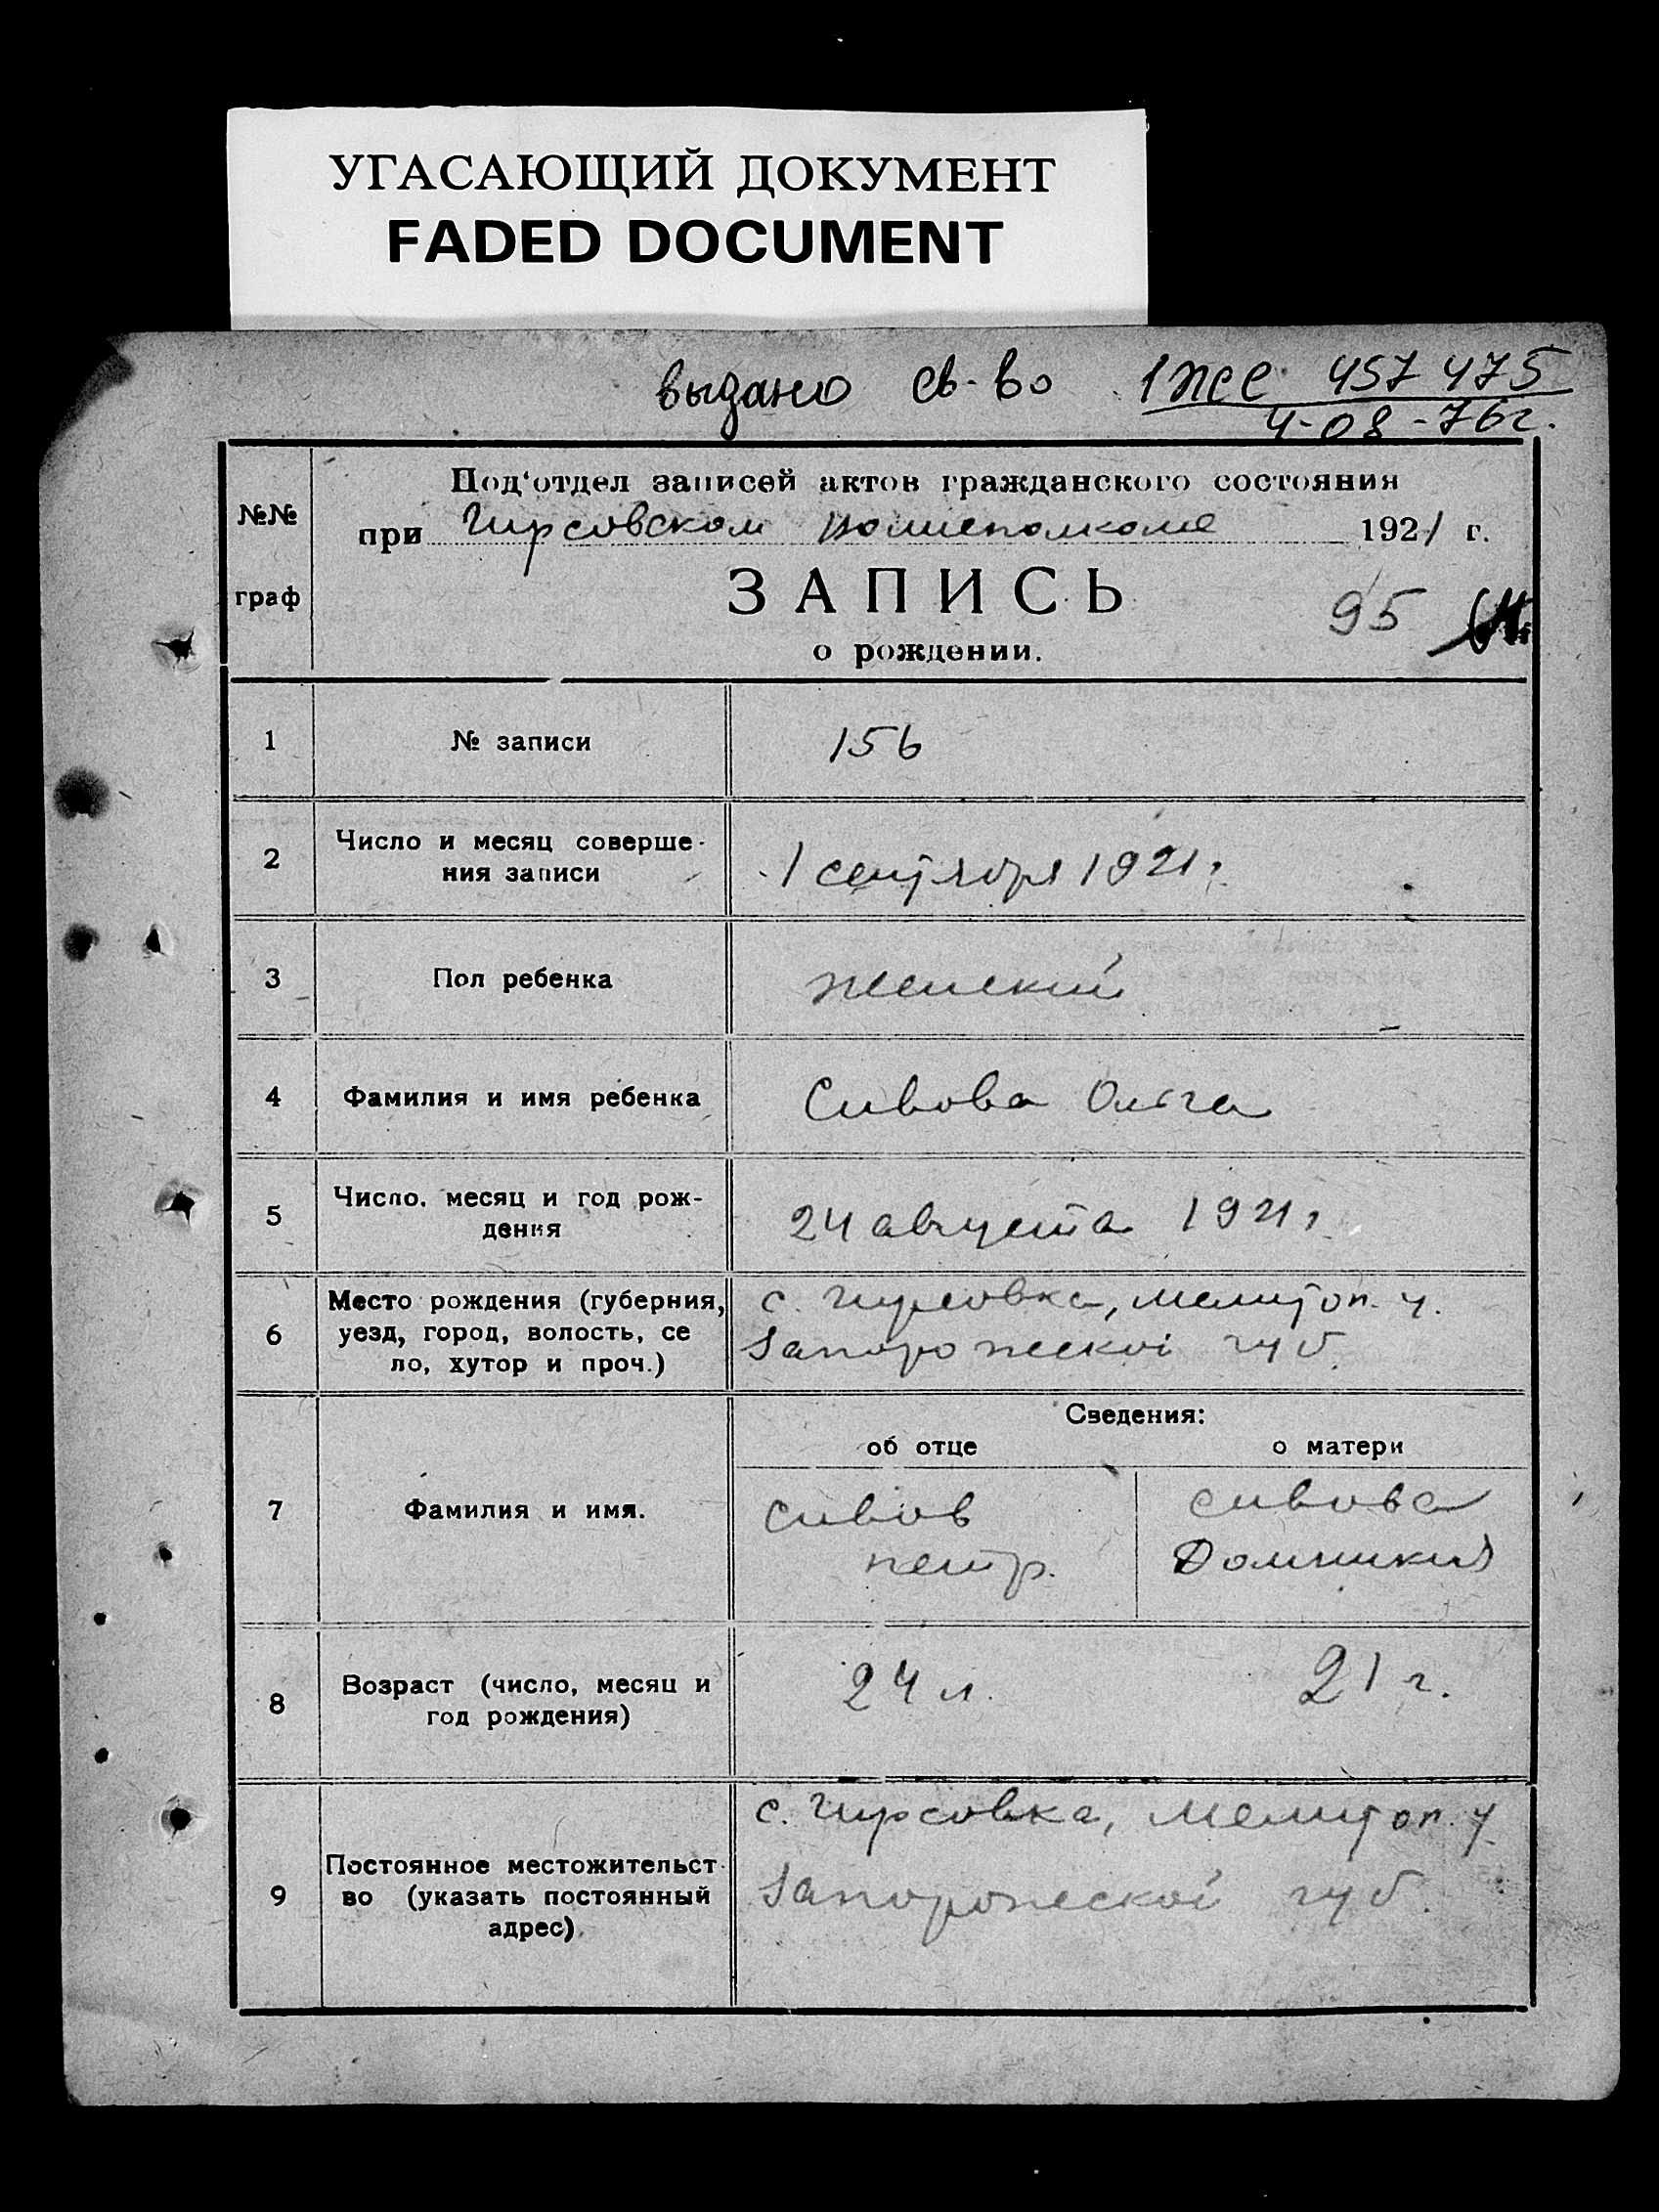 УГАСАЮЩИЙ ДОКУМЕНТ
FADED DOCUMENT
выдано св-во 1ЖС 457 475
4-08-76г.
№№
граф
Под'отдел записей актов гражданского состояния
при Гирсовском волисполкоме 1921 г.
ЗАПИСЬ
95
о рождении.
1 № записи 156
2 Число и месяц соверше-
ния записи
1 сентября 1921 г.
3 Пол ребенка женский
4 Фамилия и имя ребенка Сивова Ольга
5 Число, месяц и год рож-
дения
24 августа 1921 г.
6 Место рождения (губерния,
уезд, город, волость, се
ло, хутор и проч.)
с. Гирсовка, Мелитоп. у.
Запорожской губ.
Сведения:
об отце о матери
7 Фамилия и имя.
Сивов Сивова
Петр. Домникия
8 Возраст (число, месяц и
год рождения)
24 л. 21 г.
9 Постоянное местожительст-
во (указать постоянный
адрес)
с. Гирсовка, Мелитоп. у.
Запорожской губ.